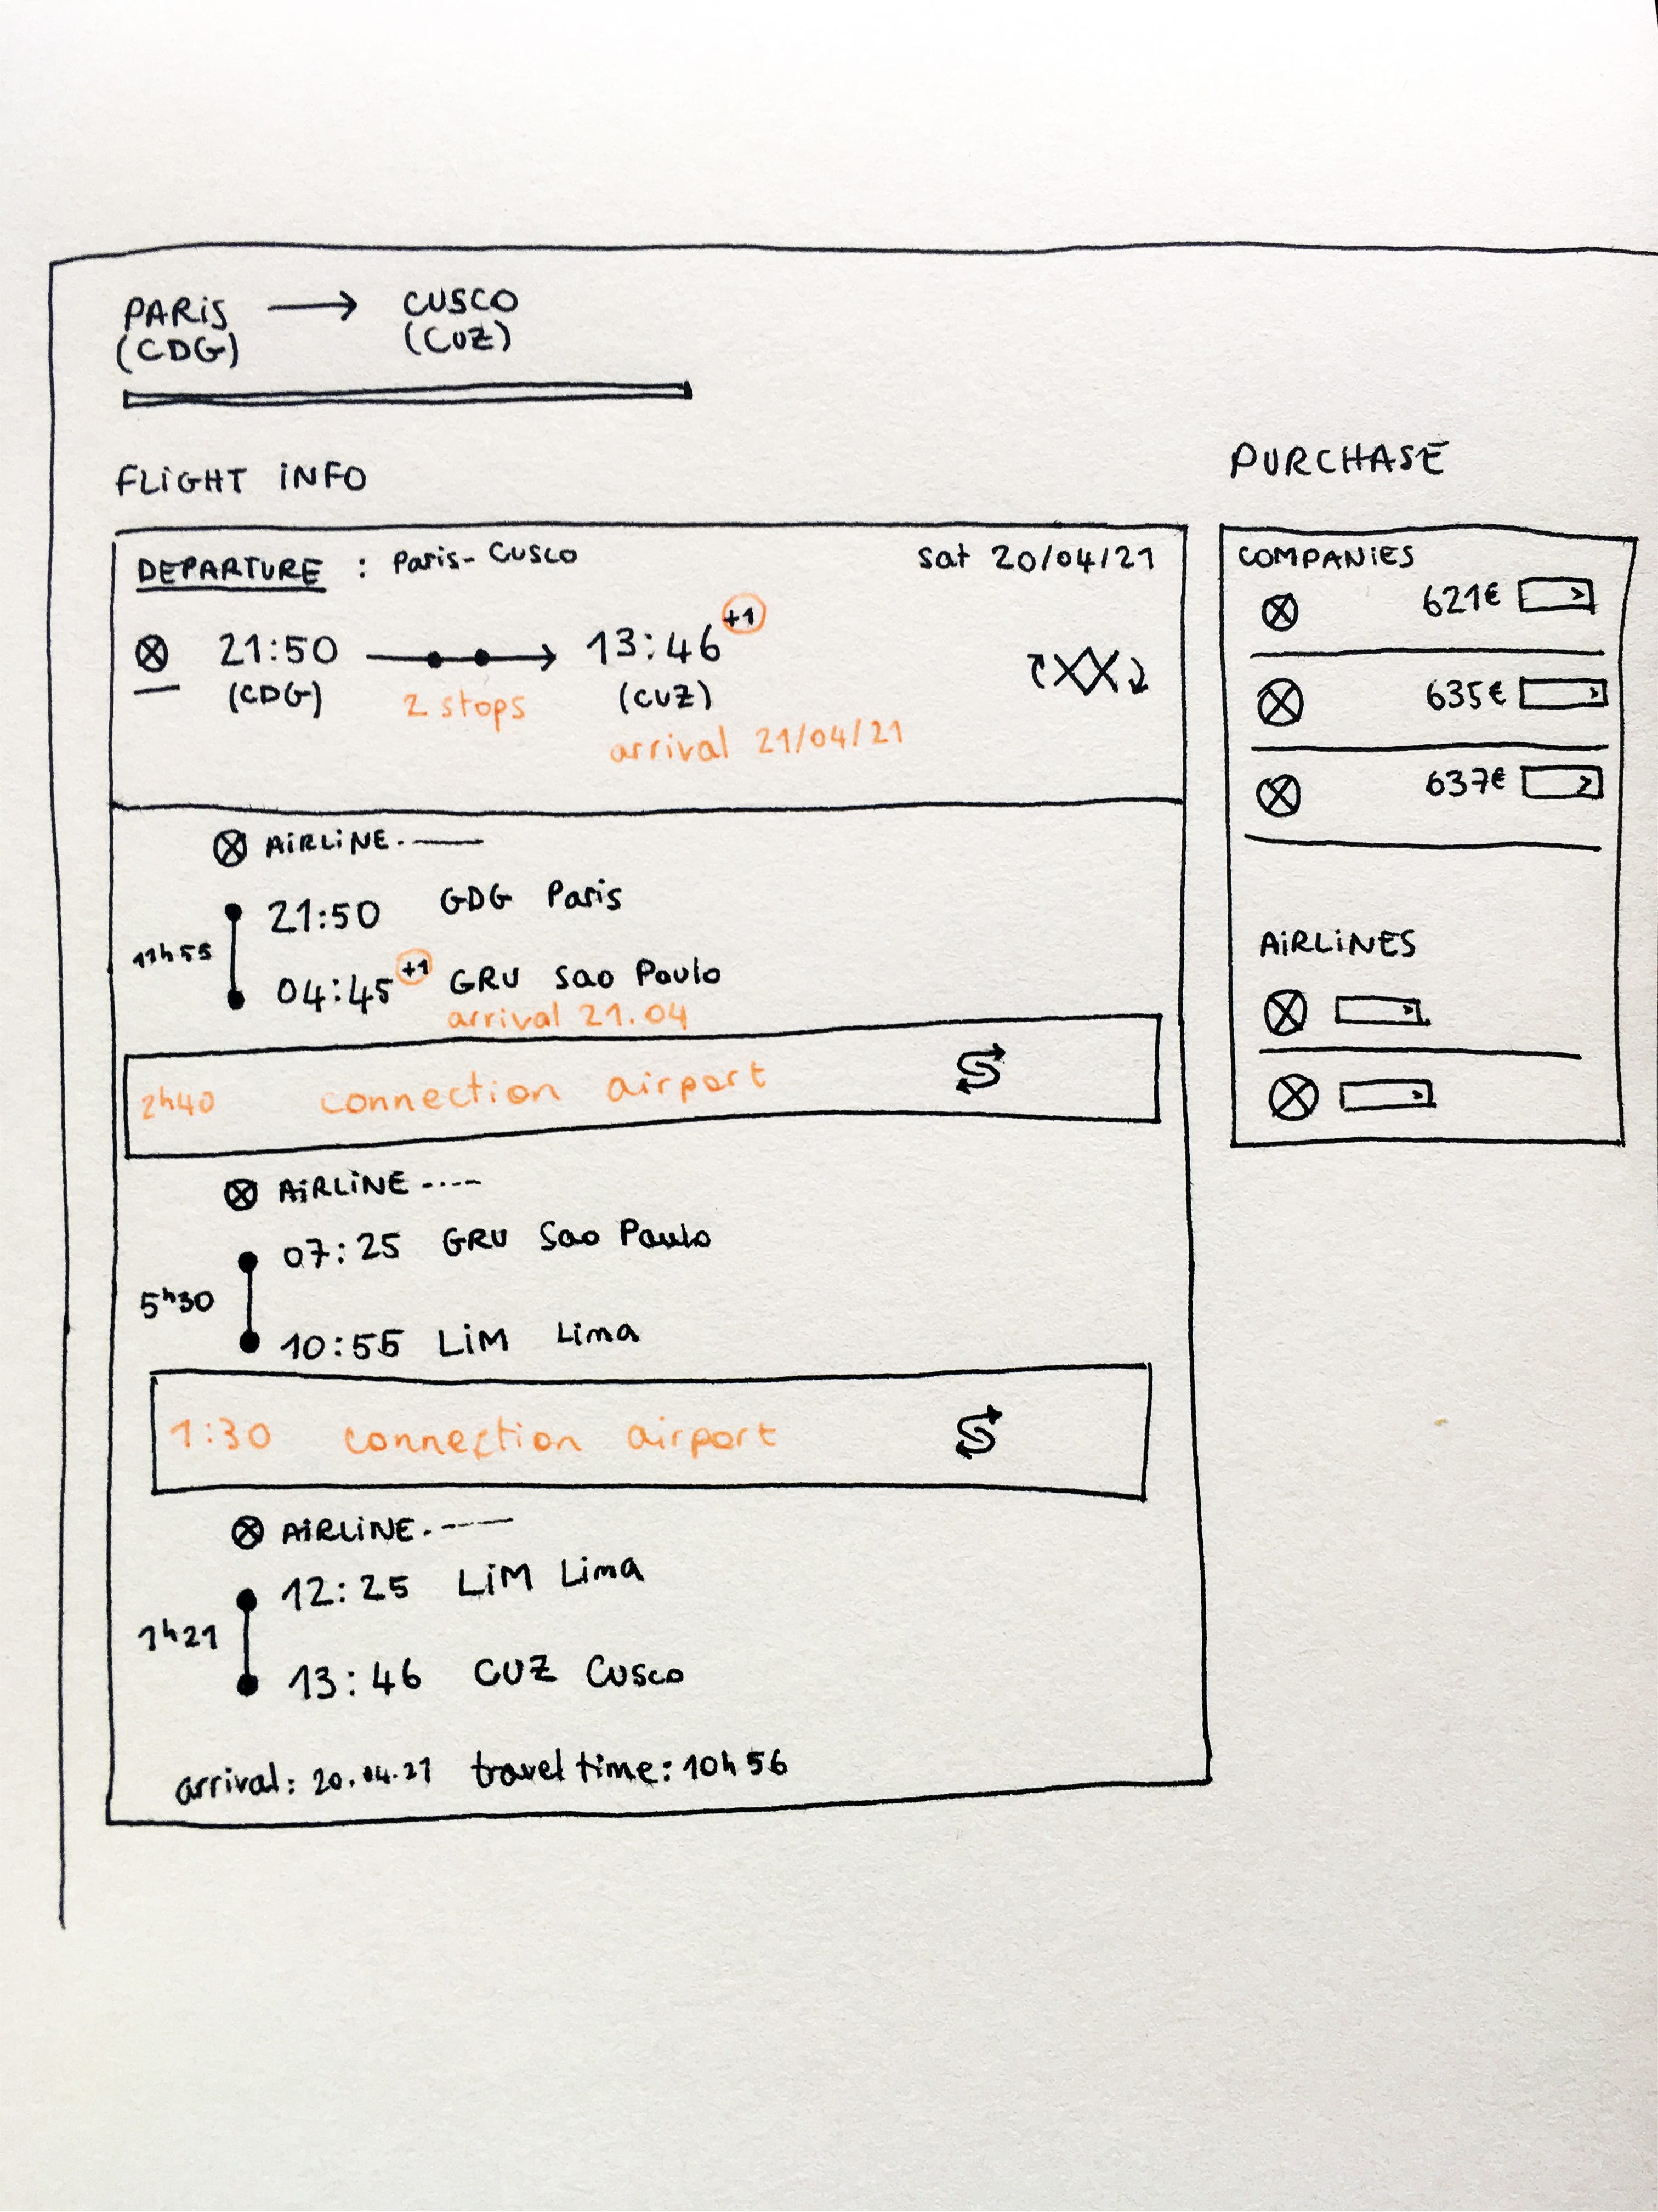 PARIS → CUSCO
(CDG) (CUZ)
FLIGHT INFO
DEPARTURE : Paris- CUSCO sat 20/04/21
21:50 13:46 +1
(CDG) 2 stops (CUZ)
arrival 21/04/21
AIRLINE.
21:50 GDG Paris
11h55
04:45 +1 GRU Sao Paulo
arrival 21.04
2h40 connection airport
AIRLINE ----
07:25 GRU Sao Paulo
5h30
10:55 LIM Lima
1:30 connection airport
AIRLINE.
12:25 LIM Lima
1h21
13:46 CUZ Cusco
arrival: 20.04.21 travel time: 10h56
PURCHASE
COMPANIES
621€ >
635€ >
637€ >
AIRLINES
>
>